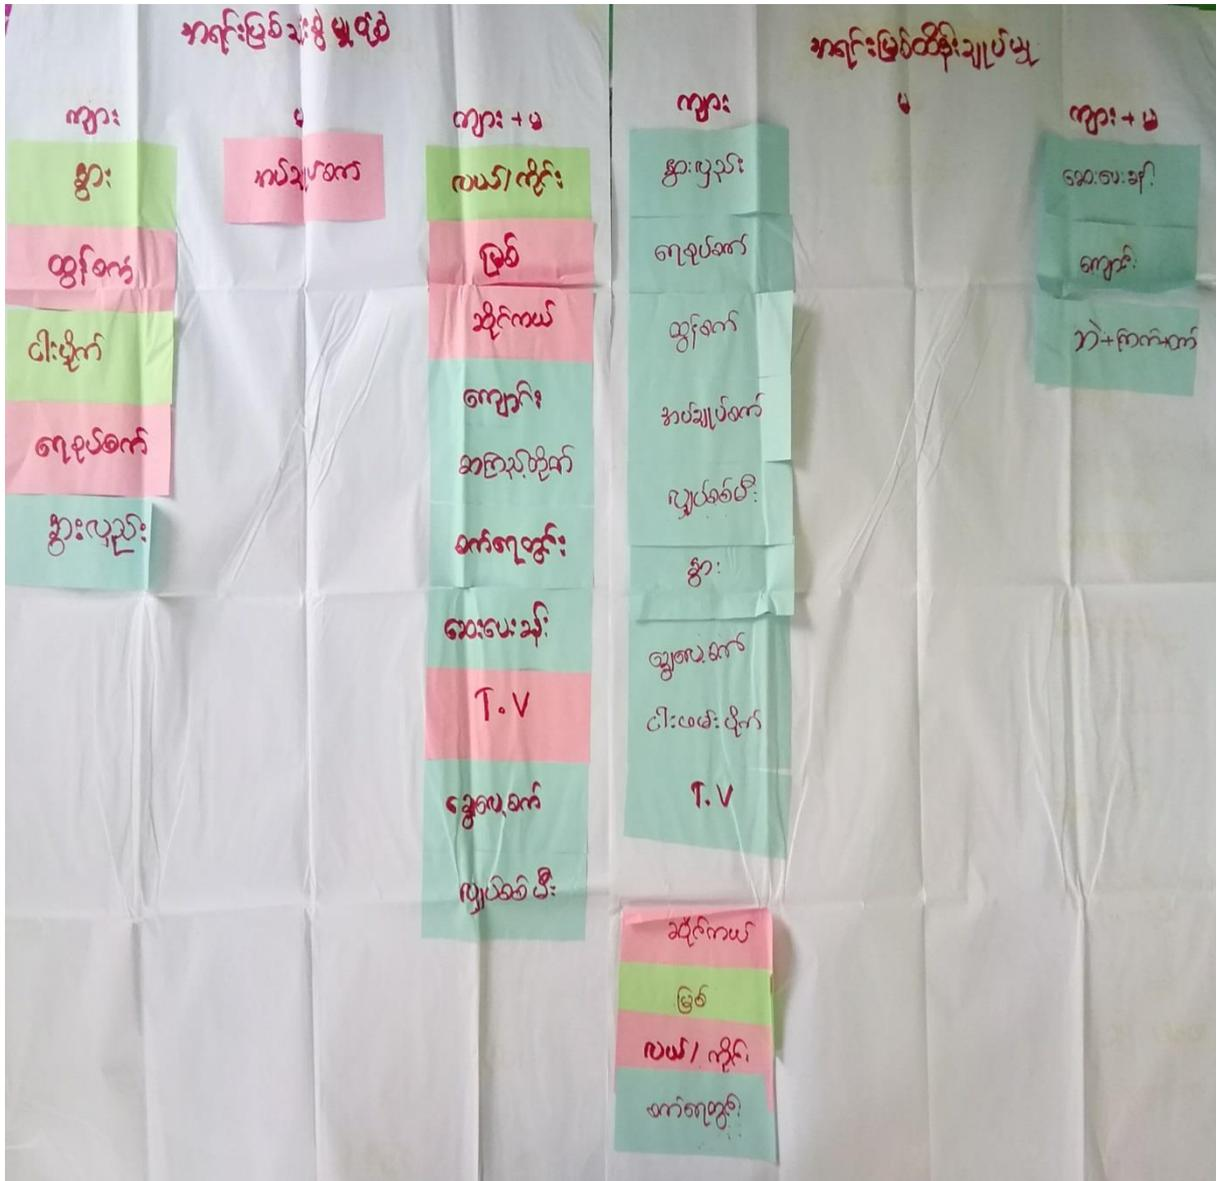 အရင်းမြစ်သုံးစွဲမှုပုံစံ
ကျား
မ
ကျား + မ
နွား
ထွန်စက်
ငါးပိုက်
ရေစုပ်စက်
နွားလှည်း
အပ်ချုပ်စက်
လယ် / ကိုင်း
မြစ်
ဆိုင်ကယ်
ကျောင်း
စာကြည့်တိုက်
စက်ရေတွင်း
ဆေးပေးခန်း
T.V
ချွေလှေ့စက်
လျှပ်စစ်မီး
အရင်းမြစ်ထိန်းချုပ်မှု
ကျား
မ
ကျား + မ
နွားလှည်း
ရေစုပ်စက်
ထွန်စက်
အပ်ချုပ်စက်
လျှပ်စစ်မီး
နွား
ချွေလှေ့စက်
ငါးဖမ်းပိုက်
T.V
ဆိုင်ကယ်
မြစ်
လယ် / ကိုင်း
စက်ရေတွင်း
ဆေးပေးခန်း
ကျောင်း
ဘဲ+ကြက်+ဝက်